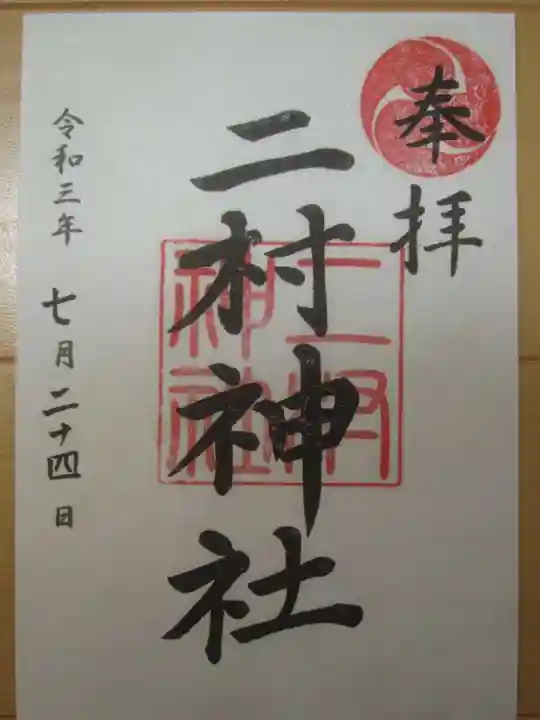 奉拝
二村神社
二村神社
令和三年 七月二十四日